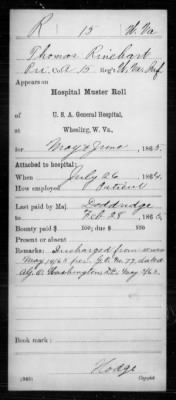 R 15 W. Va
Thomas Rinehart
Pvt, Co. A 15 Reg't W. Va. Inf.
Appears on
Hospital Muster Roll
of
U. S. A. General Hospital,
Wheeling, W. Va.,
for May & June, 1865.
Attached to hospital:
When July 26, 1864.
How employed Patient
Last paid by Maj. Doddridge
to Feb. 28, 1865
Bounty paid $ 100; due $ 100
Present or absent
Remarks: Discharged from
May 1865 from G.O. No. 77, dated
A.G.O. Washington D.C. May
Book mark:
Hodge
Copyist.